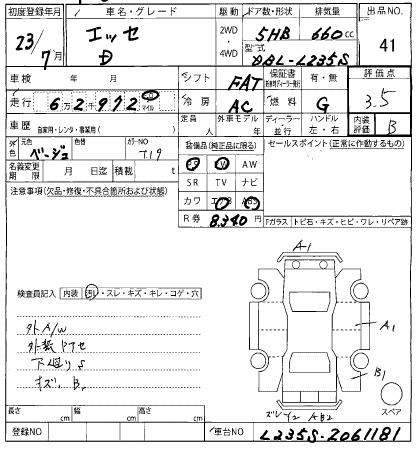 初度登録年月 車名・グレード 駆動 ドア数・形状 排気量 出品NO
23/7月 エッセ D 2WD・4WD 5HB 660cc 41
型式 DBL-L235S
車検 年 月 シフト FAT 保証書 有・無 評価点
走行 6万2千972 km マイル 冷房 AC 燃料 G 3.5
車歴 自家用・レンタ・事業用( ) 定員 人 外車モデル 年 ディーラー・並行 ハンドル 左・右 内装評価 B
外色 元色 ベージュ 色替 カラーNO T19 装備品(純正品に限る) セールスポイント(正常に作動するもの)
PS PW AW
名義変更期限 月 日迄 積載 t SR TV ナビ
注意事項(欠品・修復・不具合箇所および状態) カワ エアB ABS
R券 8,340円 Fガラス トビ石・キズ・ヒビ・ワレ・リペア跡
A1
検査員記入 内装 汚レ・スレ・キズ・キレ・コゲ・穴
外A/W
A1
下廻りS
キズ、B,
B1
AB2
スペア
長さ cm 幅 cm 高さ cm
登録NO 車台NO L235S-2061181